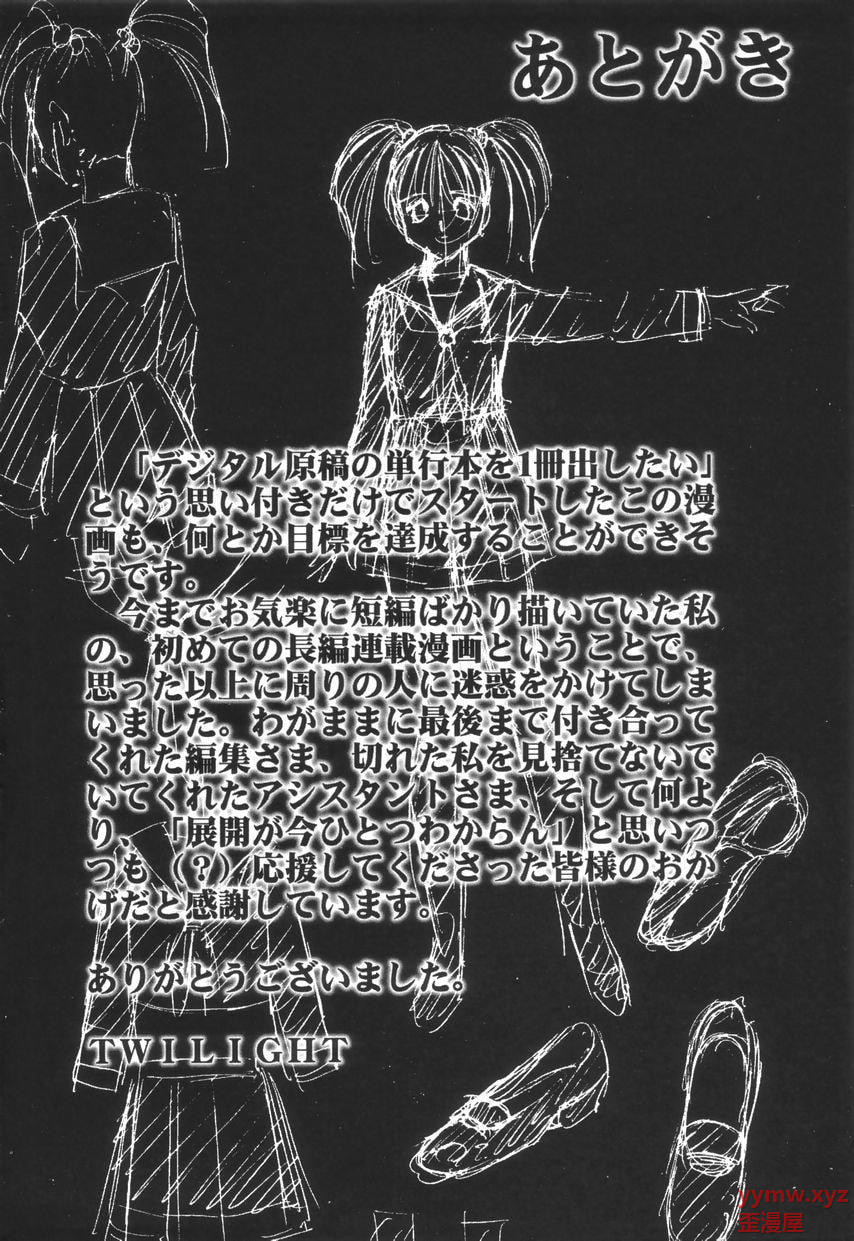 あとがき
「デジタル原稿の単行本を1冊出したい」
という思い付きだけでスタートしたこの漫
画も、何とか目標を達成することができそ
うです。
今までお気楽に短編ばかり描いていた私
の、初めての長編連載漫画ということで、
思った以上に周りの人に迷惑をかけてしま
いました。わがままに最後まで付き合って
くれた編集さま、切れた私を見捨てないで
いてくれたアシスタントさま、そして何よ
り、「展開が今ひとつわからん」と思いつ
つも（？）応援してくださった皆様のおか
げだと感謝しています。
ありがとうございました。
ＴＷＩＬＩＧＨＴ
yymw.xyz
歪漫屋